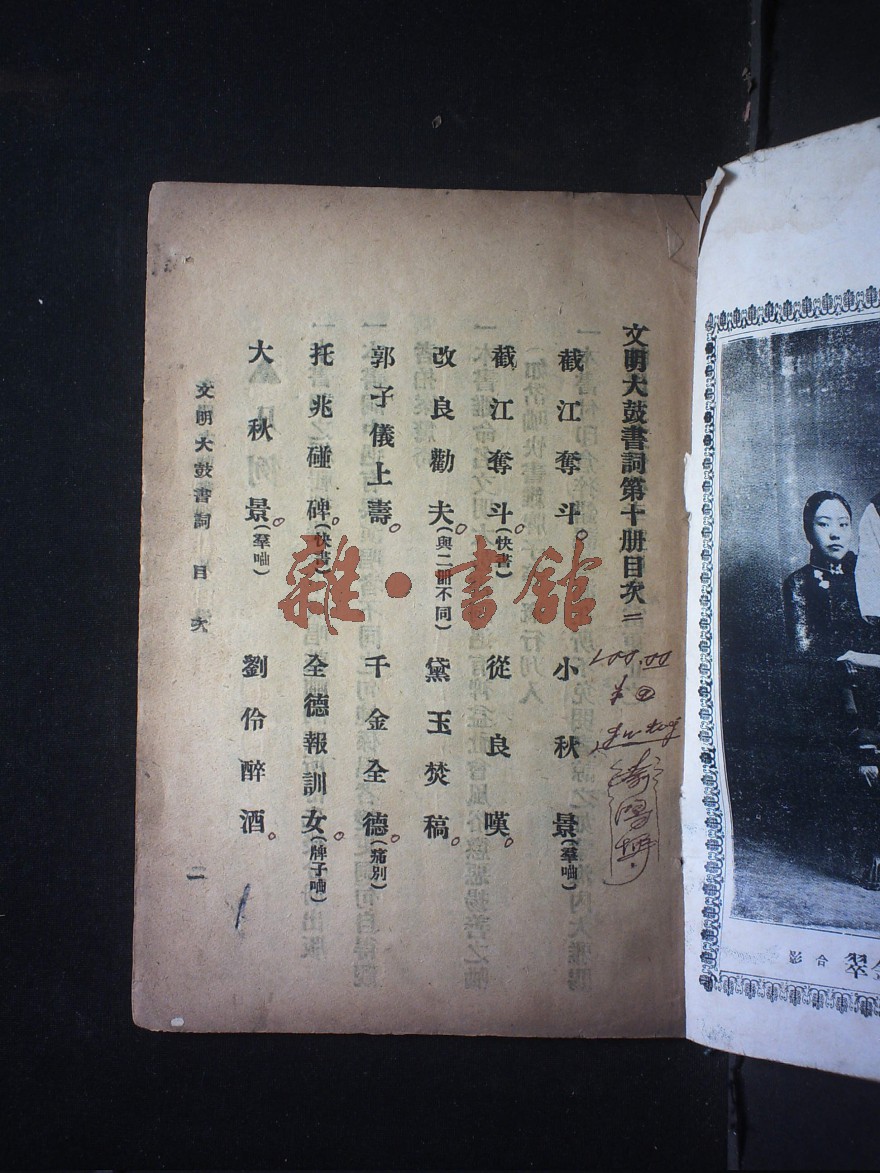 文明大鼓書詞第十册目次二
截江奪斗。
小秋景(羣呦)
截江奪斗。(快書)
從良嘆。
改良勸夫。(與二册不同)
黛玉焚稿。
郭子儀上壽。
千金全德。(痛別)
托兆碰碑。(快書)
全德報訓女。(牌子呦)
大秋景。(羣呦)
劉伶醉酒。
文明大鼓書詞 目 次
二
雜·書館
200.00
合影
翠